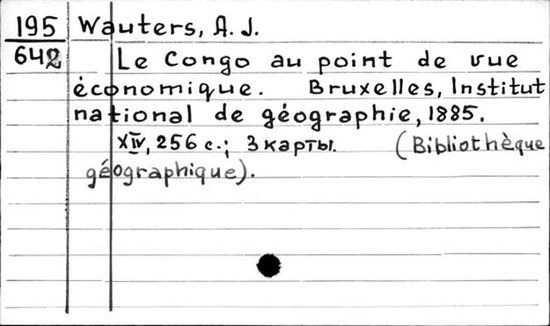 195 Wauters, A. J.
642 Le Congo au point de vue
économique. Bruxelles, Institut
national de géographie, 1885.
XIV, 256 с.; 3 карты. (Bibliothèque
géographique).